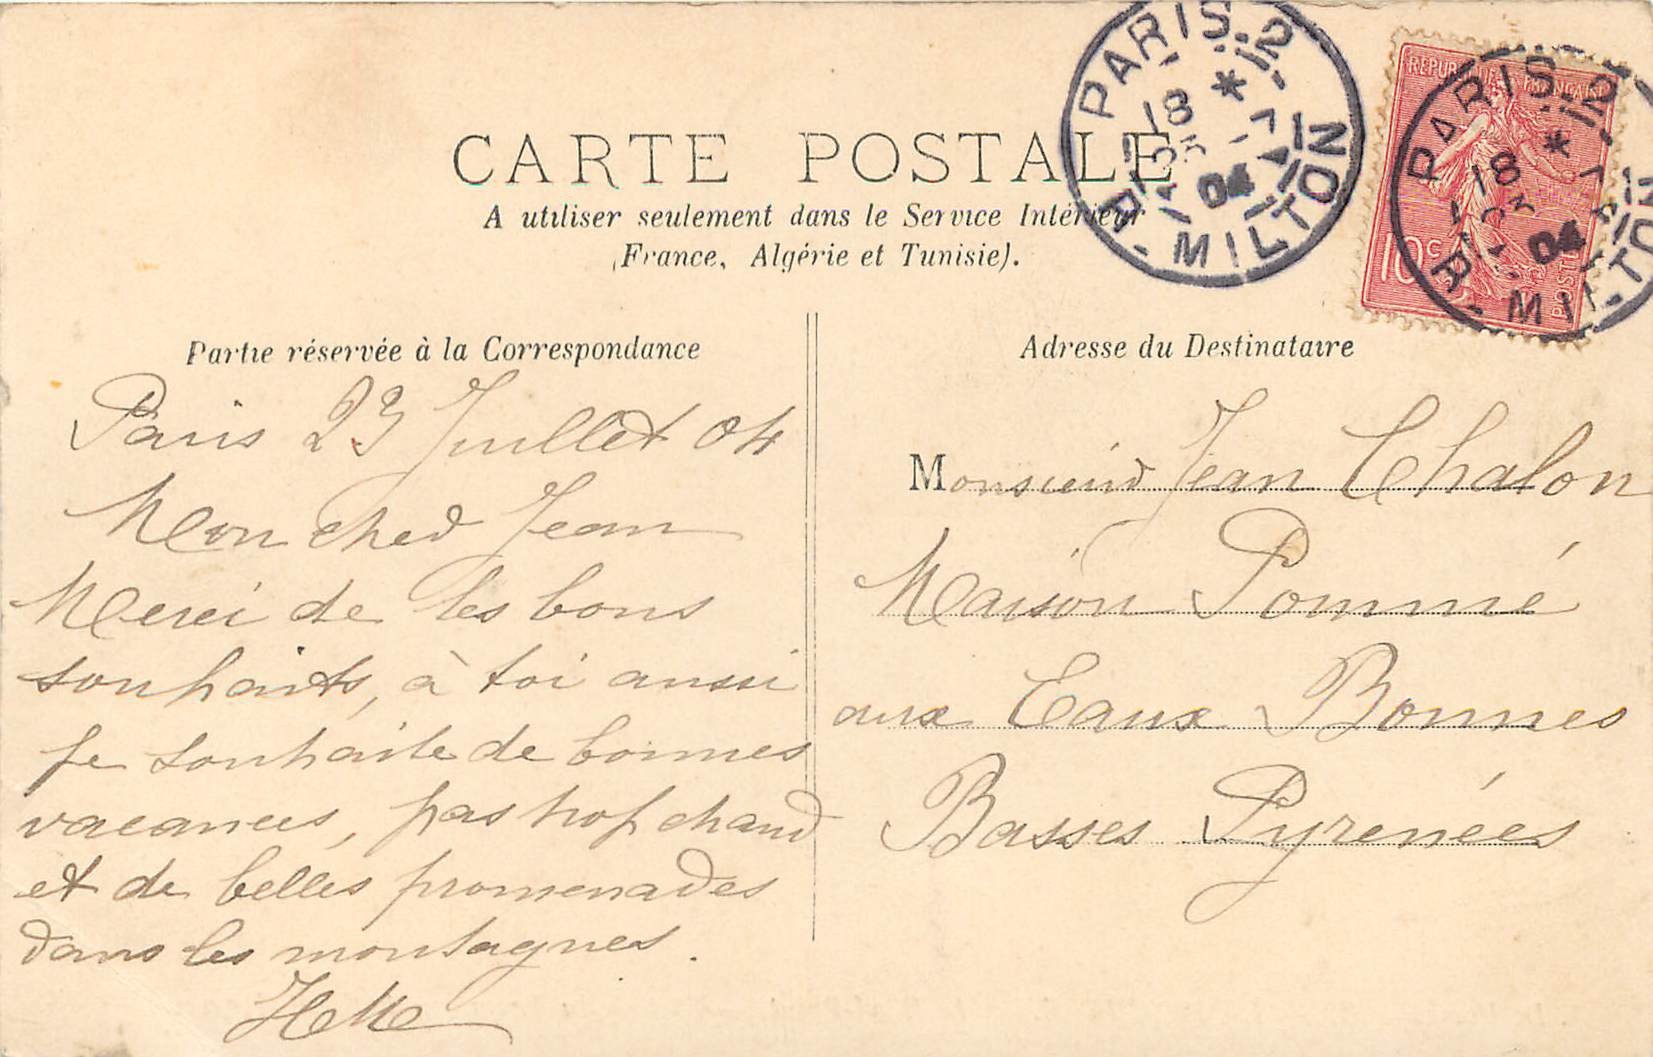 CARTE POSTALE
A utiliser seulement dans le Service Intérieur
(France, Algérie et Tunisie).
PARIS-2
18
23
-7
04
R. MILTON
REPUBLIQUE FRANÇAISE
10c
POSTES
PARIS-2
18
23
-7
04
R. MILTON
Partie réservée à la Correspondance
Paris 23 Juillet 04
Mon cher Jean
Merci de tes bons
souhaits, à toi aussi
je souhaite de bonnes
vacances, pas trop chaud
et de belles promenades
dans les montagnes.
Adresse du Destinataire
Monsieur Jean Chalon
Maison Pommé
aux Eaux Bonnes
Basses Pyrenées